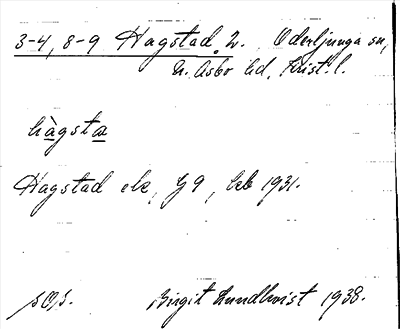 3-4, 8-9 Hagstad, 2. Oderljunga sn,
N. Åsbo hd, Krist. l.
hàgsta
Hagstad ek, G9, bl 1931.
Birgit Lundkvist 1938.